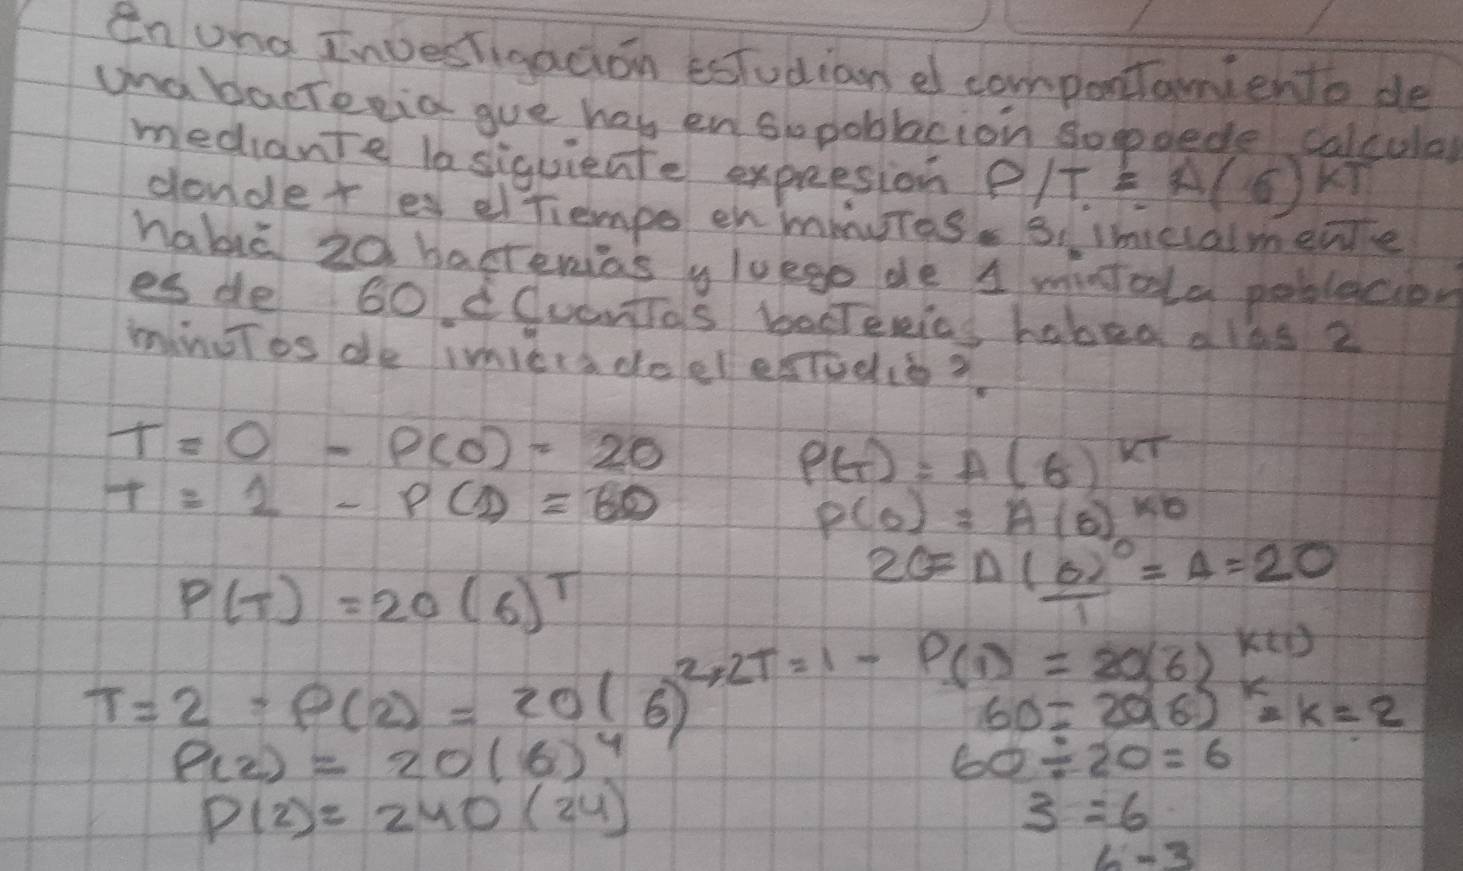 En una Investigación esTudian el comportamiento de
una bacTeria que hay en su poblacion so puede calcular
medianTe la siguiente expresión P/T = A(6)KT
donde t es el Tiempo en minuTos. Si inicialmente
había 20 bacterias y luego de 1 minTo la poblacion
es de 60. ¿CuanTas bacTerias habra a las 2
minuTos de iniciado el esTudio?.
T = 0 - P(0) - 20
P(T) = A (6) KT
T = 1 - P(1) = 60
P(0) = A (6) K0
20 = A (6)⁰ = A = 20
1
P(T) = 20 (6)ᵀ
2,2T = 1 - P(1) = 20(6) K(1)
T = 2 - P(2) = 20 (6)
60 = 20(6) K = K = 2
P(2) = 20 (6)⁴
60 ÷ 20 = 6
P(2) = 240 (24)
3 = 6
6 - 3